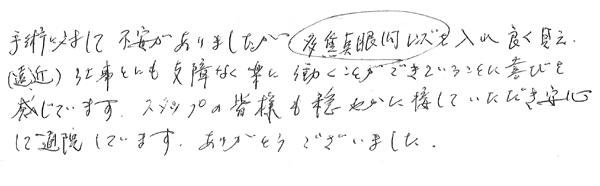 手術に対して不安がありましたが多焦点眼内レンズを入れ良く見え
(遠近)仕事にも支障なく楽に働くことができていることに喜びを
感じています。スタッフの皆様も穏やかに接していただき安心
して通院しています。ありがとうございました。